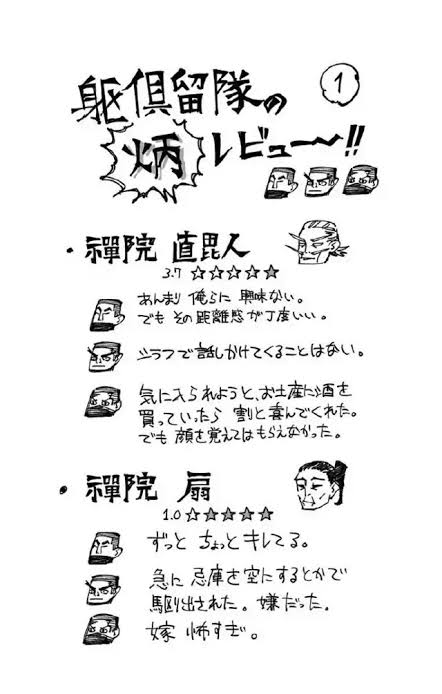 躯倶留隊の
①
炳
レビュー〜!!
・禪院 直毘人
3.7 ☆☆☆☆☆
あんまり俺らに興味ない。
でもその距離感が丁度いい。
シラフで話しかけてくることはない。
気に入られようと、お土産に酒を
買っていったら 割と喜んでくれた。
でも 顔を覚えてはもらえなかった。
・禪院 扇
1.0 ☆☆☆☆☆
ずっと ちょっとキレてる。
急に 忌庫を空にするとかで
駆り出された。嫌だった。
嫁 怖すぎ。